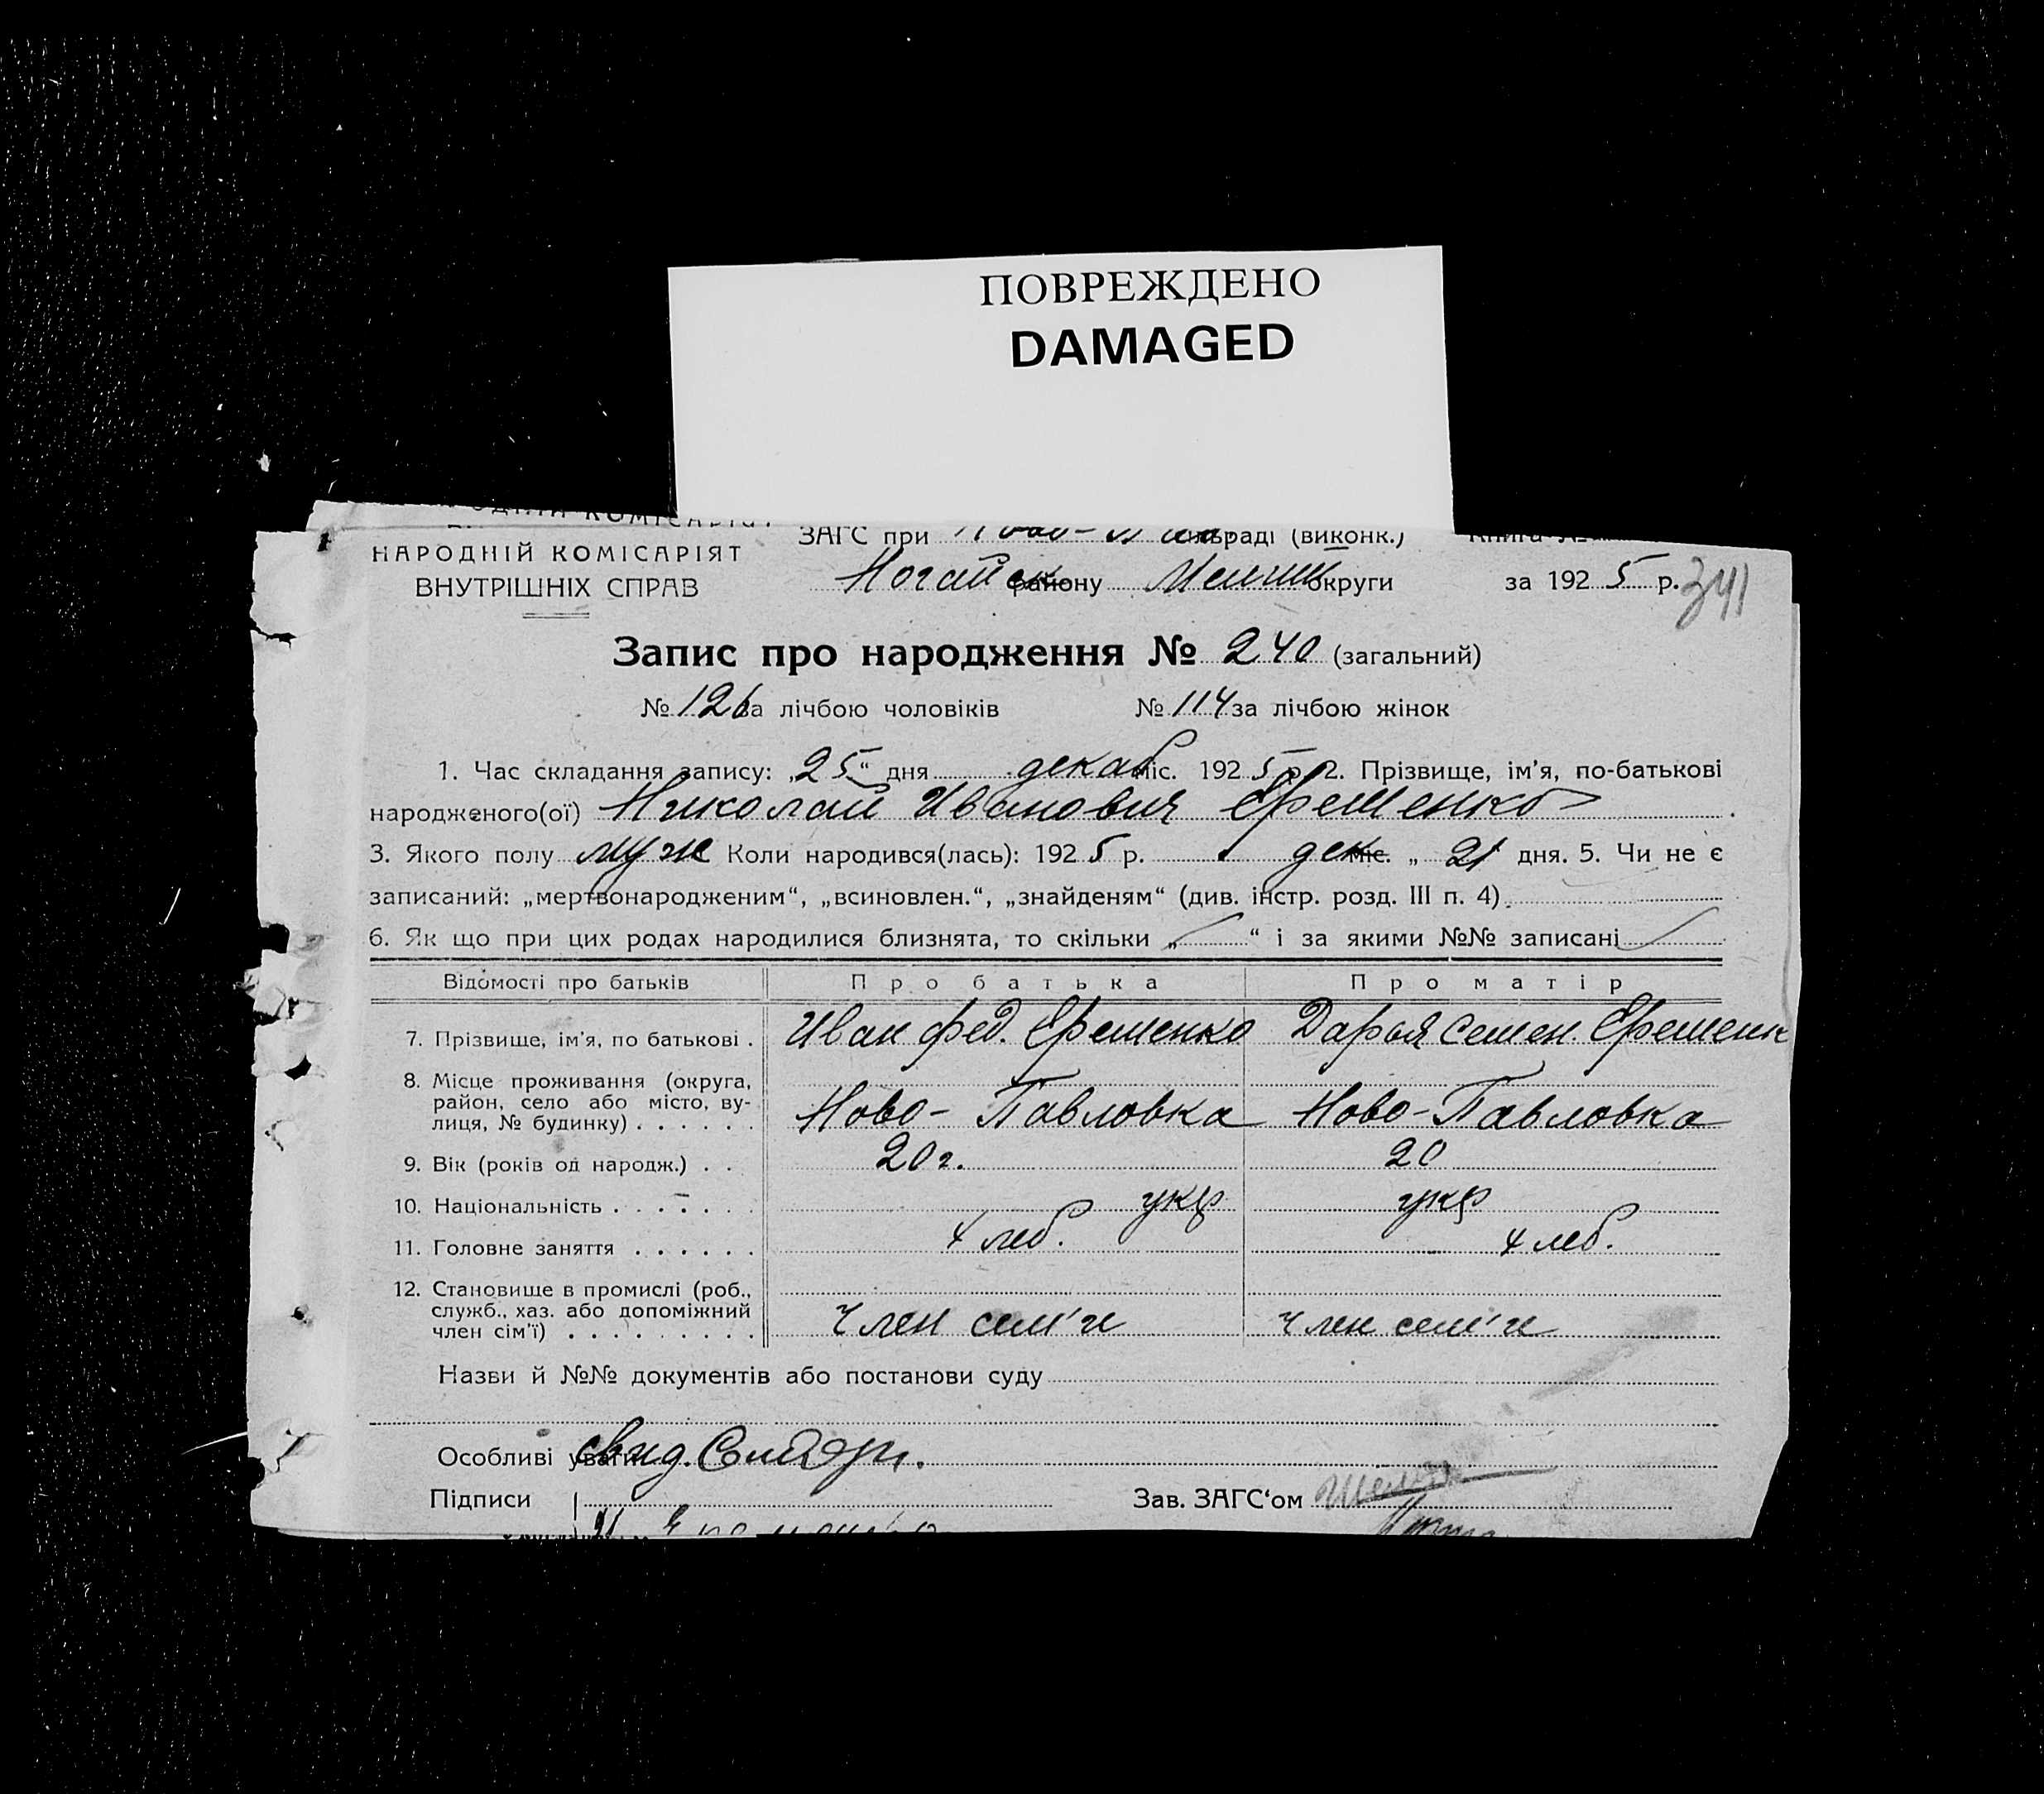 ПОВРЕЖДЕНО
DAMAGED
НАРОДНІЙ КОМІСАРІЯТ
ВНУТРІШНІХ СПРАВ
ЗАГС при Ново- раді (виконк.)
Ногайск району Мелит округи за 1925 р.
341
Запис про народження № 240 (загальний)
№ 126 за лічбою чоловіків № 114 за лічбою жінок
1. Час складання запису: „25“ дня декаб міс. 1925 р. 2. Прізвище, ім'я, по-батькові
народженого(ої) Николай Иванович Ерешенко.
3. Якого полу муж Коли народився(лась): 1925 р. дек міс. „ 21 дня. 5. Чи не є
записаний: „мертвонародженим“, „всиновлен.“, „знайденям“ (див. інстр. розд. III п. 4).
6. Як що при цих родах народилися близнята, то скільки „ “ і за якими №№ записані
Відомості про батьків Про батька Про матір
7. Прізвище, ім'я, по батькові . Иван Фед. Ерешенко Дарья Семен. Ерешенк
8. Місце проживання (округа,
район, село або місто, ву-
лиця, № будинку) . . . . . . Ново-Павловка Ново-Павловка
9. Вік (років од народж.) . . 20 г. 20
10. Національність . . . . . . . укр укр
11. Головне заняття . . . . . . хлеб. хлеб.
12. Становище в промислі (роб.,
служб., хаз. або допоміжний
член сім'ї) . . . . . . . . . член сем'и член сем'и
Назви й №№ документів або постанови суду
Особливі уваги свид.
Підписи Зав. ЗАГС‘ом